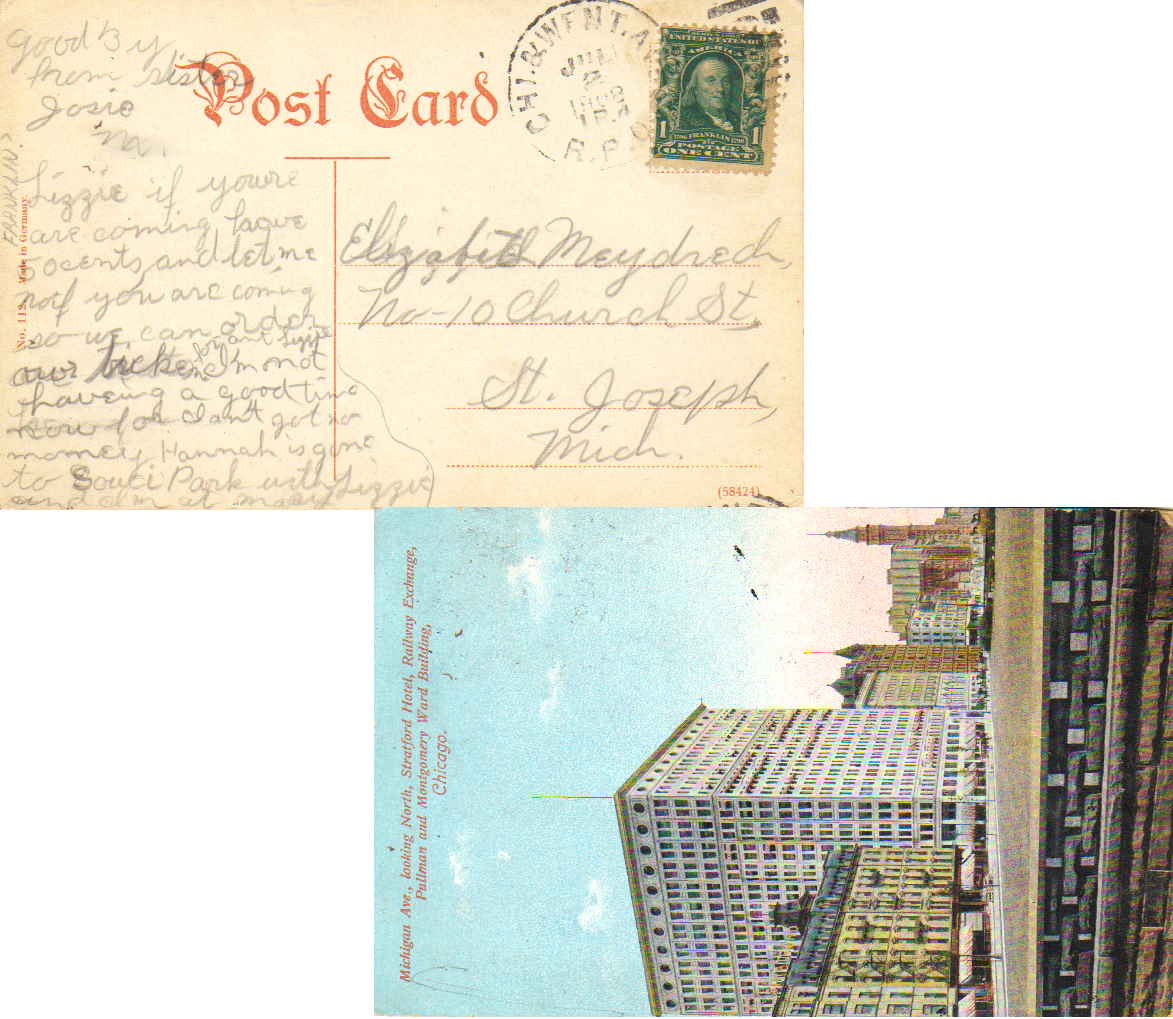 Good By
from sister
Josie
Post Card
CHI. & WENT. AV.
JUL
R.P.O.
SERIES 1902
UNITED STATES OF AMERICA
1 1
1706 FRANKLIN 1790
POSTAGE
ONE CENT
FRANKLIN?
No. 112. Made in Germany.
Lizzie if youre
are coming have
50cents, and let me
no if you are coming
so we, can order
for ant Lizzie
our I'm not
haveing a good time
now for I ant got no
momey, Hannah is gone
to Souci Park with Lizzie
and am at
Elizabeth Meydrech,
No-10 Church St.
St. Joseph,
Mich.
(58424)
Michigan Ave., looking North, Stratford Hotel, Railway Exchange,
Pullman and Montgomery Ward Building,
Chicago.